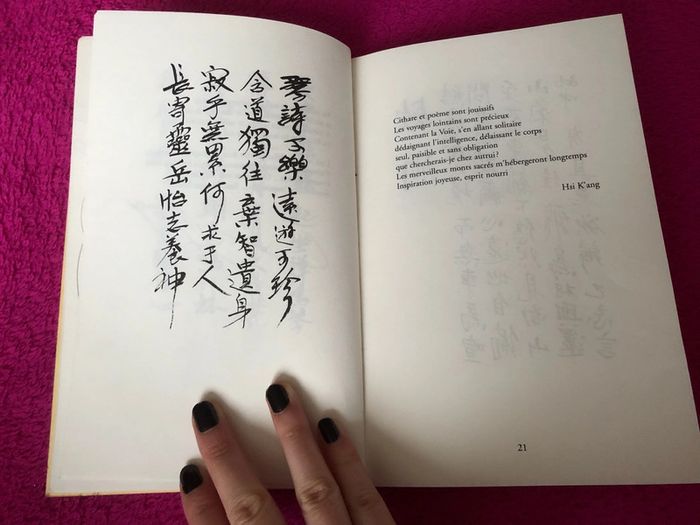 琴詩可樂遠遊可珍
含道獨往棄智遺身
寂乎無累何求于人
長寄靈岳怡志養神
Cithare et poème sont jouissifs
Les voyages lointains sont précieux
Contenant la Voie, s'en allant solitaire
dédaignant l'intelligence, délaissant le corps
seul, paisible et sans obligation
que chercherais-je chez autrui?
Les merveilleux monts sacrés m'hébergeront longtemps
Inspiration joyeuse, esprit nourri
Hsi K'ang
21